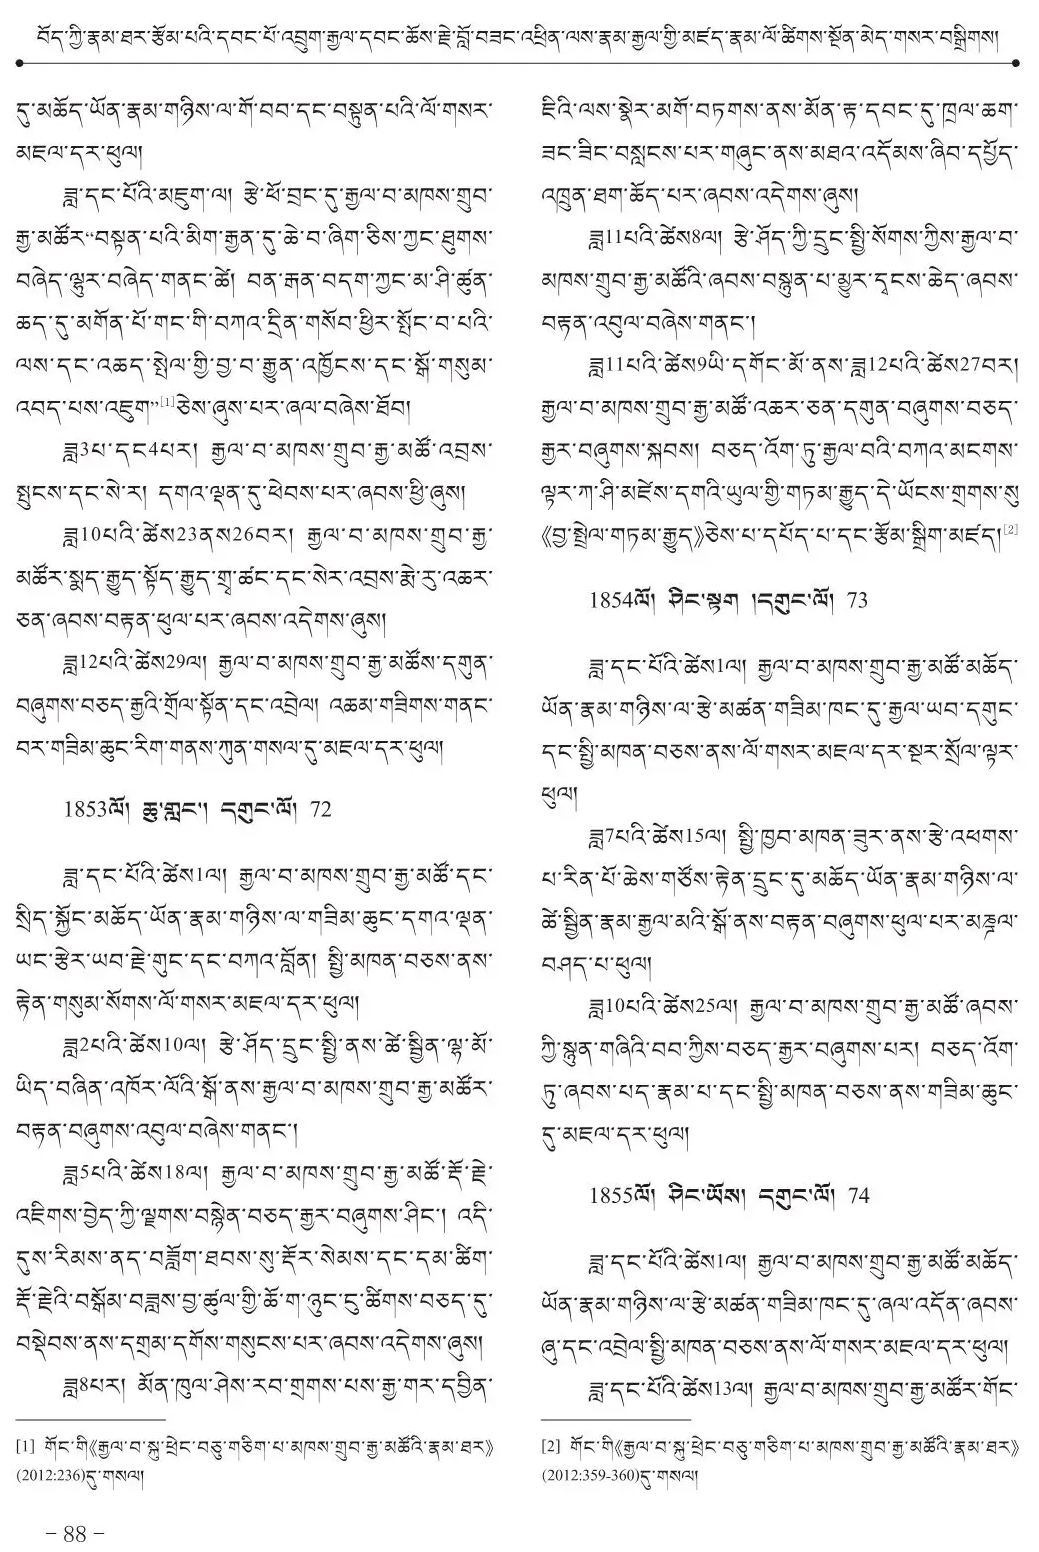 བོད་ཀྱི་རྣམ་ཐར་རྩོམ་པའི་དབང་པོ་འབྲུག་རྒྱལ་དབང་ཆོས་རྗེ་བློ་བཟང་འཕྲིན་ལས་རྣམ་རྒྱལ་གྱི་མཛད་རྣམ་ལོ་ཚིགས་སྔོན་མེད་གསར་བསྒྲིགས།
དུ་མཆོད་ཡོན་རྣམ་གཉིས་ལ་གོ་བབ་དང་བསྟུན་པའི་ལོ་གསར་
མཇལ་དར་ཕུལ།
ཟླ་དང་པོའི་མཇུག་ལ། རྩེ་ཕོ་བྲང་དུ་རྒྱལ་བ་མཁས་གྲུབ་
རྒྱ་མཚོར“བསྟན་པའི་མིག་རྒྱན་དུ་ཆེ་བ་ཞིག་ཅིས་ཀྱང་ཐུགས་
བཞེད་ལྷུར་བཞེད་གནང་ཚེ། བན་རྒན་བདག་ཀྱང་མ་ཤི་ཚུན་
ཆད་དུ་མགོན་པོ་གང་གི་བཀའ་དྲིན་གསོབ་ཕྱིར་སྤོང་བ་པའི་
ལས་དང་འཆད་སྤེལ་གྱི་བྱ་བ་རྒྱུན་འཁྱོངས་དང་སྒོ་གསུམ་
འབད་པས་འཇུག”[1]ཅེས་ཞུས་པར་ཞལ་བཞེས་ཐོབ།
ཟླ3པ་དང4པར། རྒྱལ་བ་མཁས་གྲུབ་རྒྱ་མཚོ་འབྲས་
སྤུངས་དང་སེ་ར། དགའ་ལྡན་དུ་ཕེབས་པར་ཞབས་ཕྱི་ཞུས།
ཟླ10པའི་ཚེས23ནས26བར། རྒྱལ་བ་མཁས་གྲུབ་རྒྱ་
མཚོར་སྨད་རྒྱུད་སྟོད་རྒྱུད་གྲྭ་ཚང་དང་སེར་འབྲས་རྨེ་རུ་འཆར་
ཅན་ཞབས་བརྟན་ཕུལ་པར་ཞབས་འདེགས་ཞུས།
ཟླ12པའི་ཚེས29ལ། རྒྱལ་བ་མཁས་གྲུབ་རྒྱ་མཚོས་དགུན་
བཞུགས་བཅད་རྒྱའི་གྲོལ་སྟོན་དང་འབྲེལ། འཆམ་གཟིགས་གནང་
བར་གཟིམ་ཆུང་རིག་གནས་ཀུན་གསལ་དུ་མཇལ་དར་ཕུལ།
1853ལོ། ཆུ་གླང་། དགུང་ལོ། 72
ཟླ་དང་པོའི་ཚེས1ལ། རྒྱལ་བ་མཁས་གྲུབ་རྒྱ་མཚོ་དང་
སྲིད་སྐྱོང་མཆོད་ཡོན་རྣམ་གཉིས་ལ་གཟིམ་ཆུང་དགའ་ལྡན་
ཡང་རྩེར་ཡབ་རྗེ་གུང་དང་བཀའ་བློན། སྤྱི་མཁན་བཅས་ནས་
རྟེན་གསུམ་སོགས་ལོ་གསར་མཇལ་དར་ཕུལ།
ཟླ2པའི་ཚེས10ལ། རྩེ་ཤོད་དྲུང་སྤྱི་ནས་ཚེ་སྦྱིན་ལྷ་མོ་
ཡིད་བཞིན་འཁོར་ལོའི་སྒོ་ནས་རྒྱལ་བ་མཁས་གྲུབ་རྒྱ་མཚོར་
བརྟན་བཞུགས་འབུལ་བཞེས་གནང་།
ཟླ5པའི་ཚེས18ལ། རྒྱལ་བ་མཁས་གྲུབ་རྒྱ་མཚོ་རྡོ་རྗེ་
འཇིགས་བྱེད་ཀྱི་ལྗགས་བསྙེན་བཅད་རྒྱར་བཞུགས་ཤིང་། འདི་
དུས་རིམས་ནད་བཟློག་ཐབས་སུ་རྡོར་སེམས་དང་དམ་ཚིག་
རྡོ་རྗེའི་བསྒོམ་བཟླས་བྱ་ཚུལ་གྱི་ཆོ་ག་ཉུང་ངུ་ཚིགས་བཅད་དུ་
བསྡེབས་ནས་དགྲམ་དགོས་གསུངས་པར་ཞབས་འདེགས་ཞུས།
ཟླ8པར། མོན་ཁུལ་ཤེས་རབ་གྲགས་པས་རྒྱ་གར་དབྱིན་
[1] གོང་གི《རྒྱལ་བ་སྐུ་ཕྲེང་བཅུ་གཅིག་པ་མཁས་གྲུབ་རྒྱ་མཚོའི་རྣམ་ཐར》
(2012:236)དུ་གསལ།
ཇིའི་ལས་སྣེར་མགོ་བཏགས་ནས་མོན་རྟ་དབང་དུ་ཁྲལ་ཆག་
ཟང་ཟིང་བསླངས་པར་གཞུང་ནས་མཐའ་འདོམས་ཞིབ་དཔྱོད་
འཁྲུན་ཐག་ཆོད་པར་ཞབས་འདེགས་ཞུས།
ཟླ11པའི་ཚེས8ལ། རྩེ་ཤོད་ཀྱི་དྲུང་སྤྱི་སོགས་ཀྱིས་རྒྱལ་བ་
མཁས་གྲུབ་རྒྱ་མཚོའི་ཞབས་བསྙུན་པ་མྱུར་དྭངས་ཆེད་ཞབས་
བརྟན་འབུལ་བཞེས་གནང་།
ཟླ11པའི་ཚེས9ཡི་དགོང་མོ་ནས་ཟླ12པའི་ཚེས27བར།
རྒྱལ་བ་མཁས་གྲུབ་རྒྱ་མཚོ་འཆར་ཅན་དགུན་བཞུགས་བཅད་
རྒྱར་བཞུགས་སྐབས། བཅད་འོག་ཏུ་རྒྱལ་བའི་བཀའ་མངགས་
ལྟར་ཀ་ཤི་མཛེས་དགའི་ཡུལ་གྱི་གཏམ་རྒྱུད་དེ་ཡོངས་གྲགས་སུ
《བྱ་སྤྲེལ་གཏམ་རྒྱུད》ཅེས་པ་དཔོད་པ་དང་རྩོམ་སྒྲིག་མཛད།[2]
1854ལོ། ཤིང་སྟག །དགུང་ལོ། 73
ཟླ་དང་པོའི་ཚེས1ལ། རྒྱལ་བ་མཁས་གྲུབ་རྒྱ་མཚོ་མཆོད་
ཡོན་རྣམ་གཉིས་ལ་རྩེ་མཚན་གཟིམ་ཁང་དུ་རྒྱལ་ཡབ་དགུང་
དང་སྤྱི་མཁན་བཅས་ནས་ལོ་གསར་མཇལ་དར་སྔར་སྲོལ་ལྟར་
ཕུལ།
ཟླ7པའི་ཚེས15ལ། སྤྱི་ཁྱབ་མཁན་ཟུར་ནས་རྩེ་འཕགས་
པ་རིན་པོ་ཆེས་གཙོས་རྟེན་དྲུང་དུ་མཆོད་ཡོན་རྣམ་གཉིས་ལ་
ཚེ་སྦྱིན་རྣམ་རྒྱལ་མའི་སྒོ་ནས་བརྟན་བཞུགས་ཕུལ་པར་མཎྜལ་
བཤད་པ་ཕུལ།
ཟླ10པའི་ཚེས25ལ། རྒྱལ་བ་མཁས་གྲུབ་རྒྱ་མཚོ་ཞབས་
ཀྱི་སྙུན་གཞིའི་བབ་ཀྱིས་བཅད་རྒྱར་བཞུགས་པར། བཅད་འོག་
ཏུ་ཞབས་པད་རྣམ་པ་དང་སྤྱི་མཁན་བཅས་ནས་གཟིམ་ཆུང་
དུ་མཇལ་དར་ཕུལ།
1855ལོ། ཤིང་ཡོས། དགུང་ལོ། 74
ཟླ་དང་པོའི་ཚེས1ལ། རྒྱལ་བ་མཁས་གྲུབ་རྒྱ་མཚོ་མཆོད་
ཡོན་རྣམ་གཉིས་ལ་རྩེ་མཚན་གཟིམ་ཁང་དུ་ཞལ་འདོན་ཞབས་
ཞུ་དང་འབྲེལ་སྤྱི་མཁན་བཅས་ནས་ལོ་གསར་མཇལ་དར་ཕུལ།
ཟླ་དང་པོའི་ཚེས13ལ། རྒྱལ་བ་མཁས་གྲུབ་རྒྱ་མཚོར་གོང་
[2] གོང་གི《རྒྱལ་བ་སྐུ་ཕྲེང་བཅུ་གཅིག་པ་མཁས་གྲུབ་རྒྱ་མཚོའི་རྣམ་ཐར》
(2012:359-360)དུ་གསལ།
- 88 -